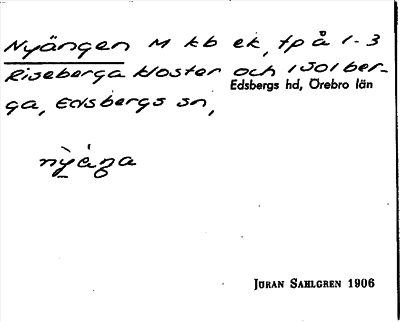 Nyängen M kb ek, tp å 1-3
Riseberga kloster och Isolber-
ga, Edsbergs sn, Edsbergs hd, Örebro län
nyäna
JÖRAN SAHLGREN 1906